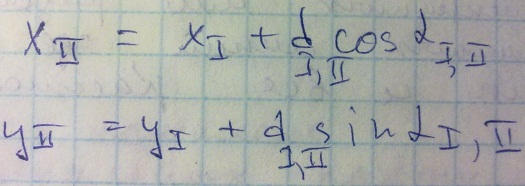 x_II = x_I + d_I,II cos α_I,II
y_II = y_I + d_I,II sin α_I,II